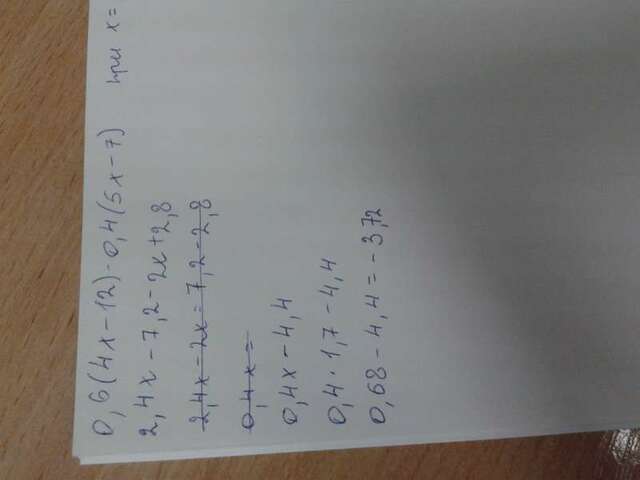 0,6(4x-12)-0,4(5x-7) при x=
2,4x-7,2-2x+2,8
2,4x-2x=7,2-2,8
0,4x=
0,4x-4,4
0,4·1,7-4,4
0,68-4,4=-3,72